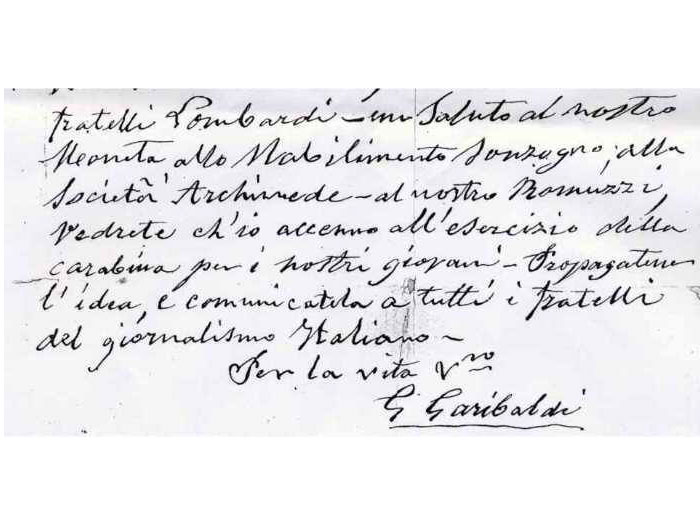 Fratelli Lombardi – un Saluto al nostro
Moneta allo Stabilimento Sonzogno, alla
Società Archimede – al nostro Romuzzi,
Vedrete ch'io accenno all'esercizio della
carabina per i nostri giovani – Propagatene
l'idea, e comunicatela a tutti i fratelli
del giornalismo Italiano –
Per la vita Vro
G Garibaldi